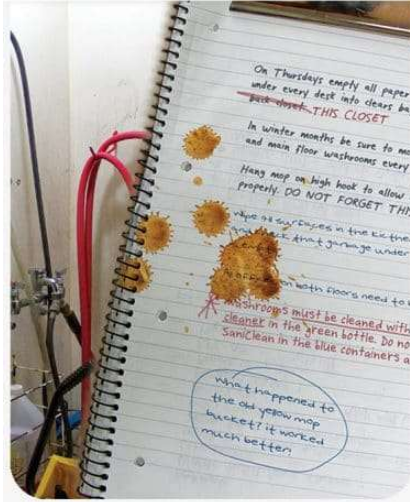 On Thursdays empty all paper
under every desk into clears
back closet. THIS CLOSET
In winter months be sure to
and main floor washrooms every
Hang mop on high hook to allow
properly. DO NOT FORGET
surfaces in the kitchen
that garbage under
on both floors need to
washrooms must be cleaned with
cleaner in the green bottle. Do
SaniClean in the blue containers
what happened to
the old yellow mop
bucket? it worked
much better!